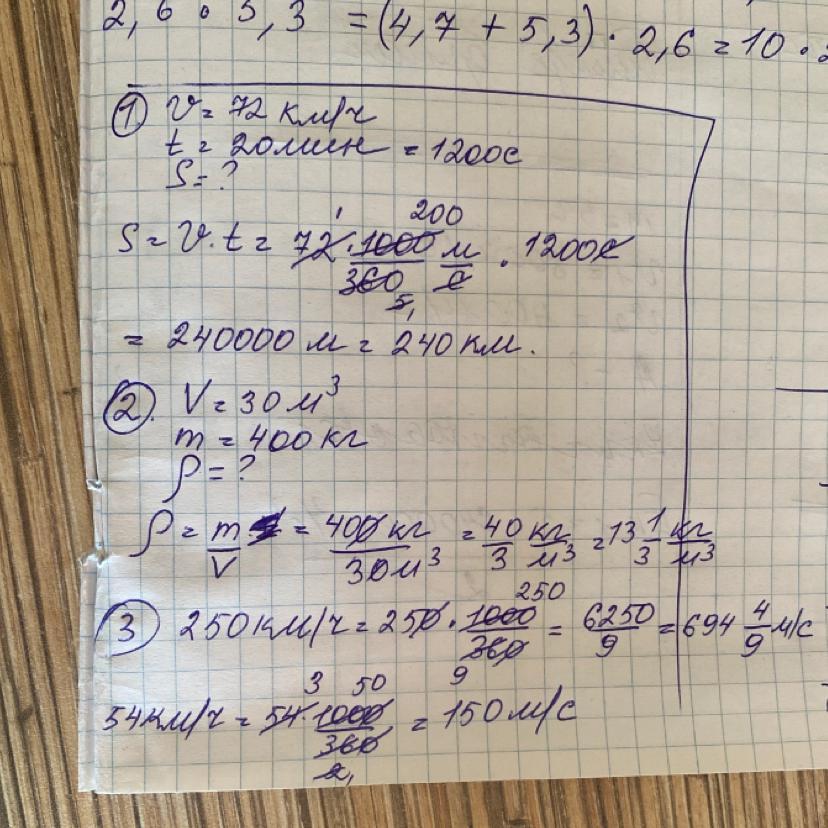 2,6 · 5,3 = (4,7 + 5,3) · 2,6 = 10 ·
① v = 72 км/ч
t = 20 мин = 1200с
S = ?
S = v · t = 72 · 1000/360 м/с · 1200с
1 200
5,
= 240000 м = 240 км.
②. V = 30 м³
m = 400 кг
ρ = ?
ρ = m/V = 400 кг/30 м³ = 40/3 кг/м³ = 13 1/3 кг/м³
③ 250 км/ч = 250 · 1000/360 = 6250/9 = 694 4/9 м/с
250
9
54 км/ч = 54 · 1000/360 = 150 м/с
3 50
2,